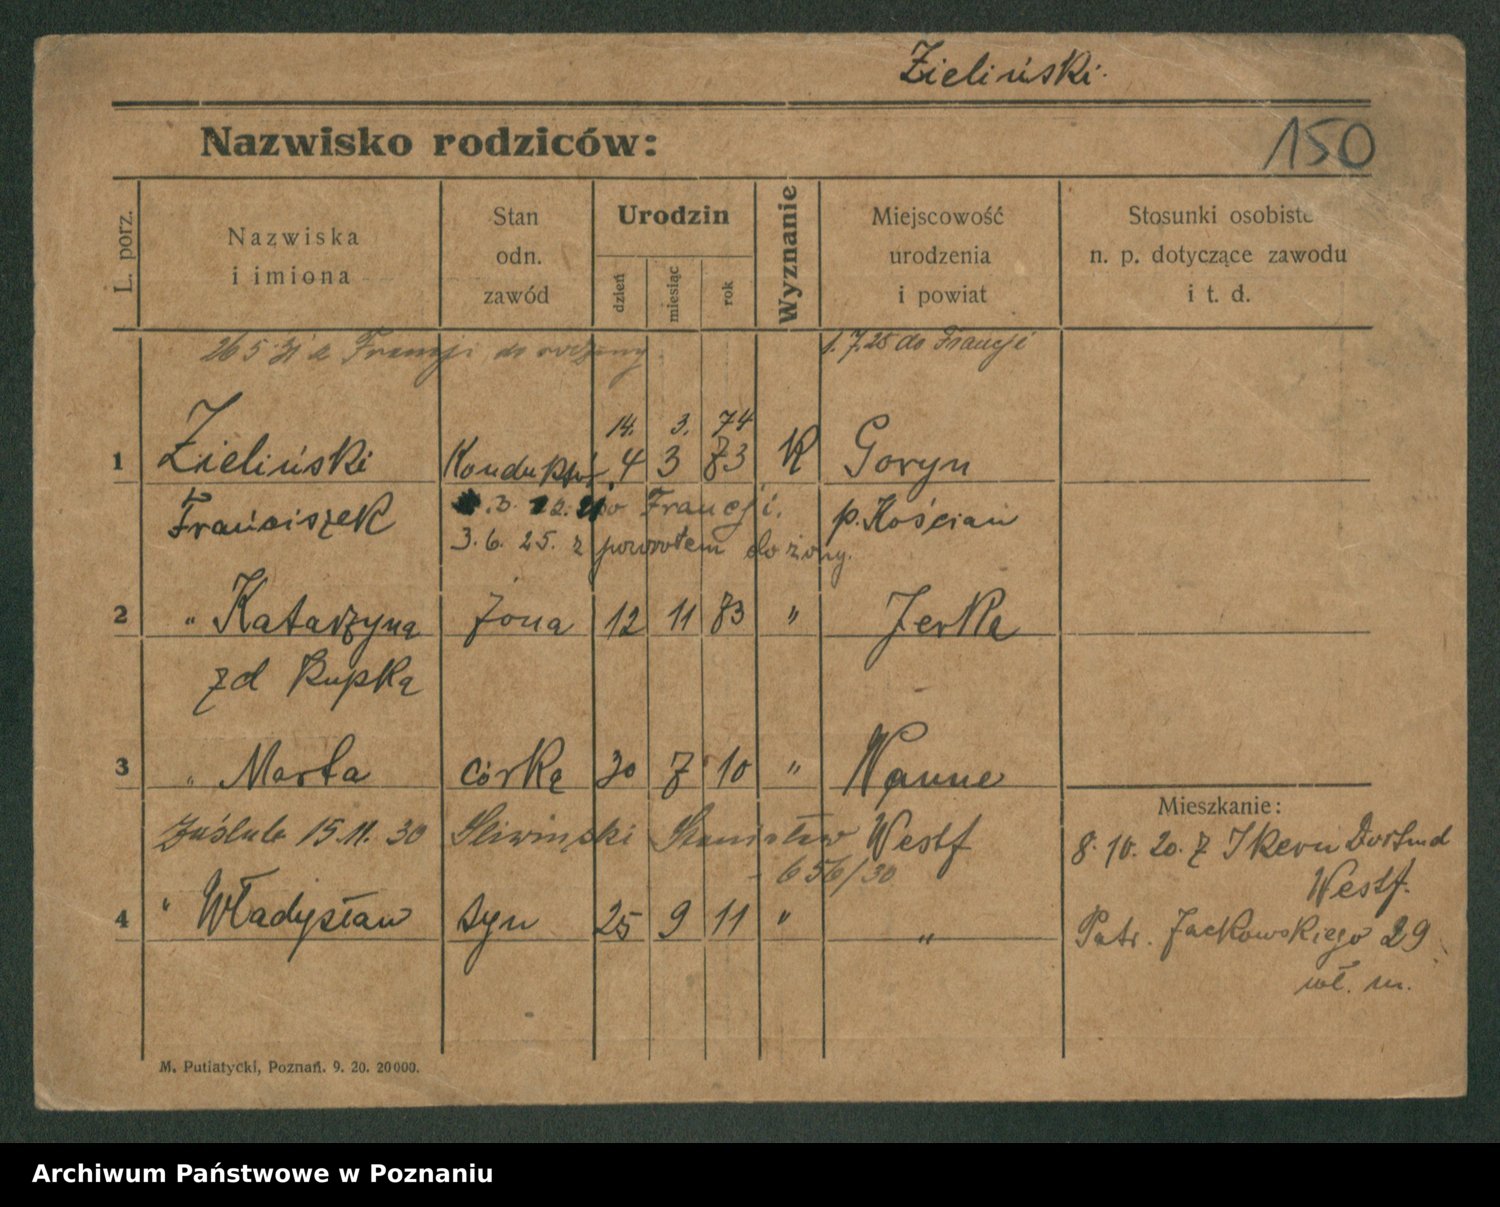 Zieliński.
Nazwisko rodziców:
150
L. porz.
Nazwiska
i imiona
Stan
odn.
zawód
Urodzin
dzień
miesiąc
rok
Wyznanie
Miejscowość
urodzenia
i powiat
Stosunki osobiste
n. p. dotyczące zawodu
i t. d.
26 5 z Francji do
1. 7. 25 do Francji
14. 3. 74
1 Zieliński Konduktor 4 3 83 K Goryn
Franciszek 3. 12. 21 do Francji. p. Kościan
3. 6. 25. z powrotem do żony.
2 " Katarzyna żona 12 11 83 " Jerka
zd Rupka
3 " Marta córka 30 7 10 " Wanne
Mieszkanie:
Zaślub 15. 11. 30 Śliwiński Stanisław Westf
8. 10. 20. z Ikern Dortmd
656/30
Westf.
4 " Władysław syn 25 9 11 " "
Patr. Jackowskiego 29
wł. m.
M. Putiatycki, Poznań. 9. 20. 20000.
Archiwum Państwowe w Poznaniu